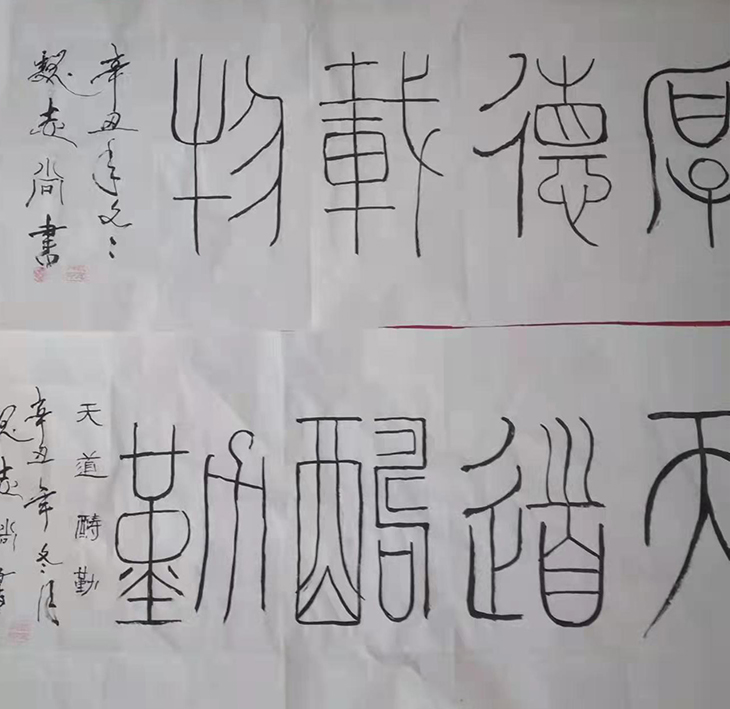 厚德載物
辛丑年冬
魏志尚書
天道醻勤
天道醻勤
辛丑年冬月
魏志尚書